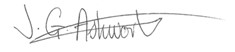 J. G. Ashworth